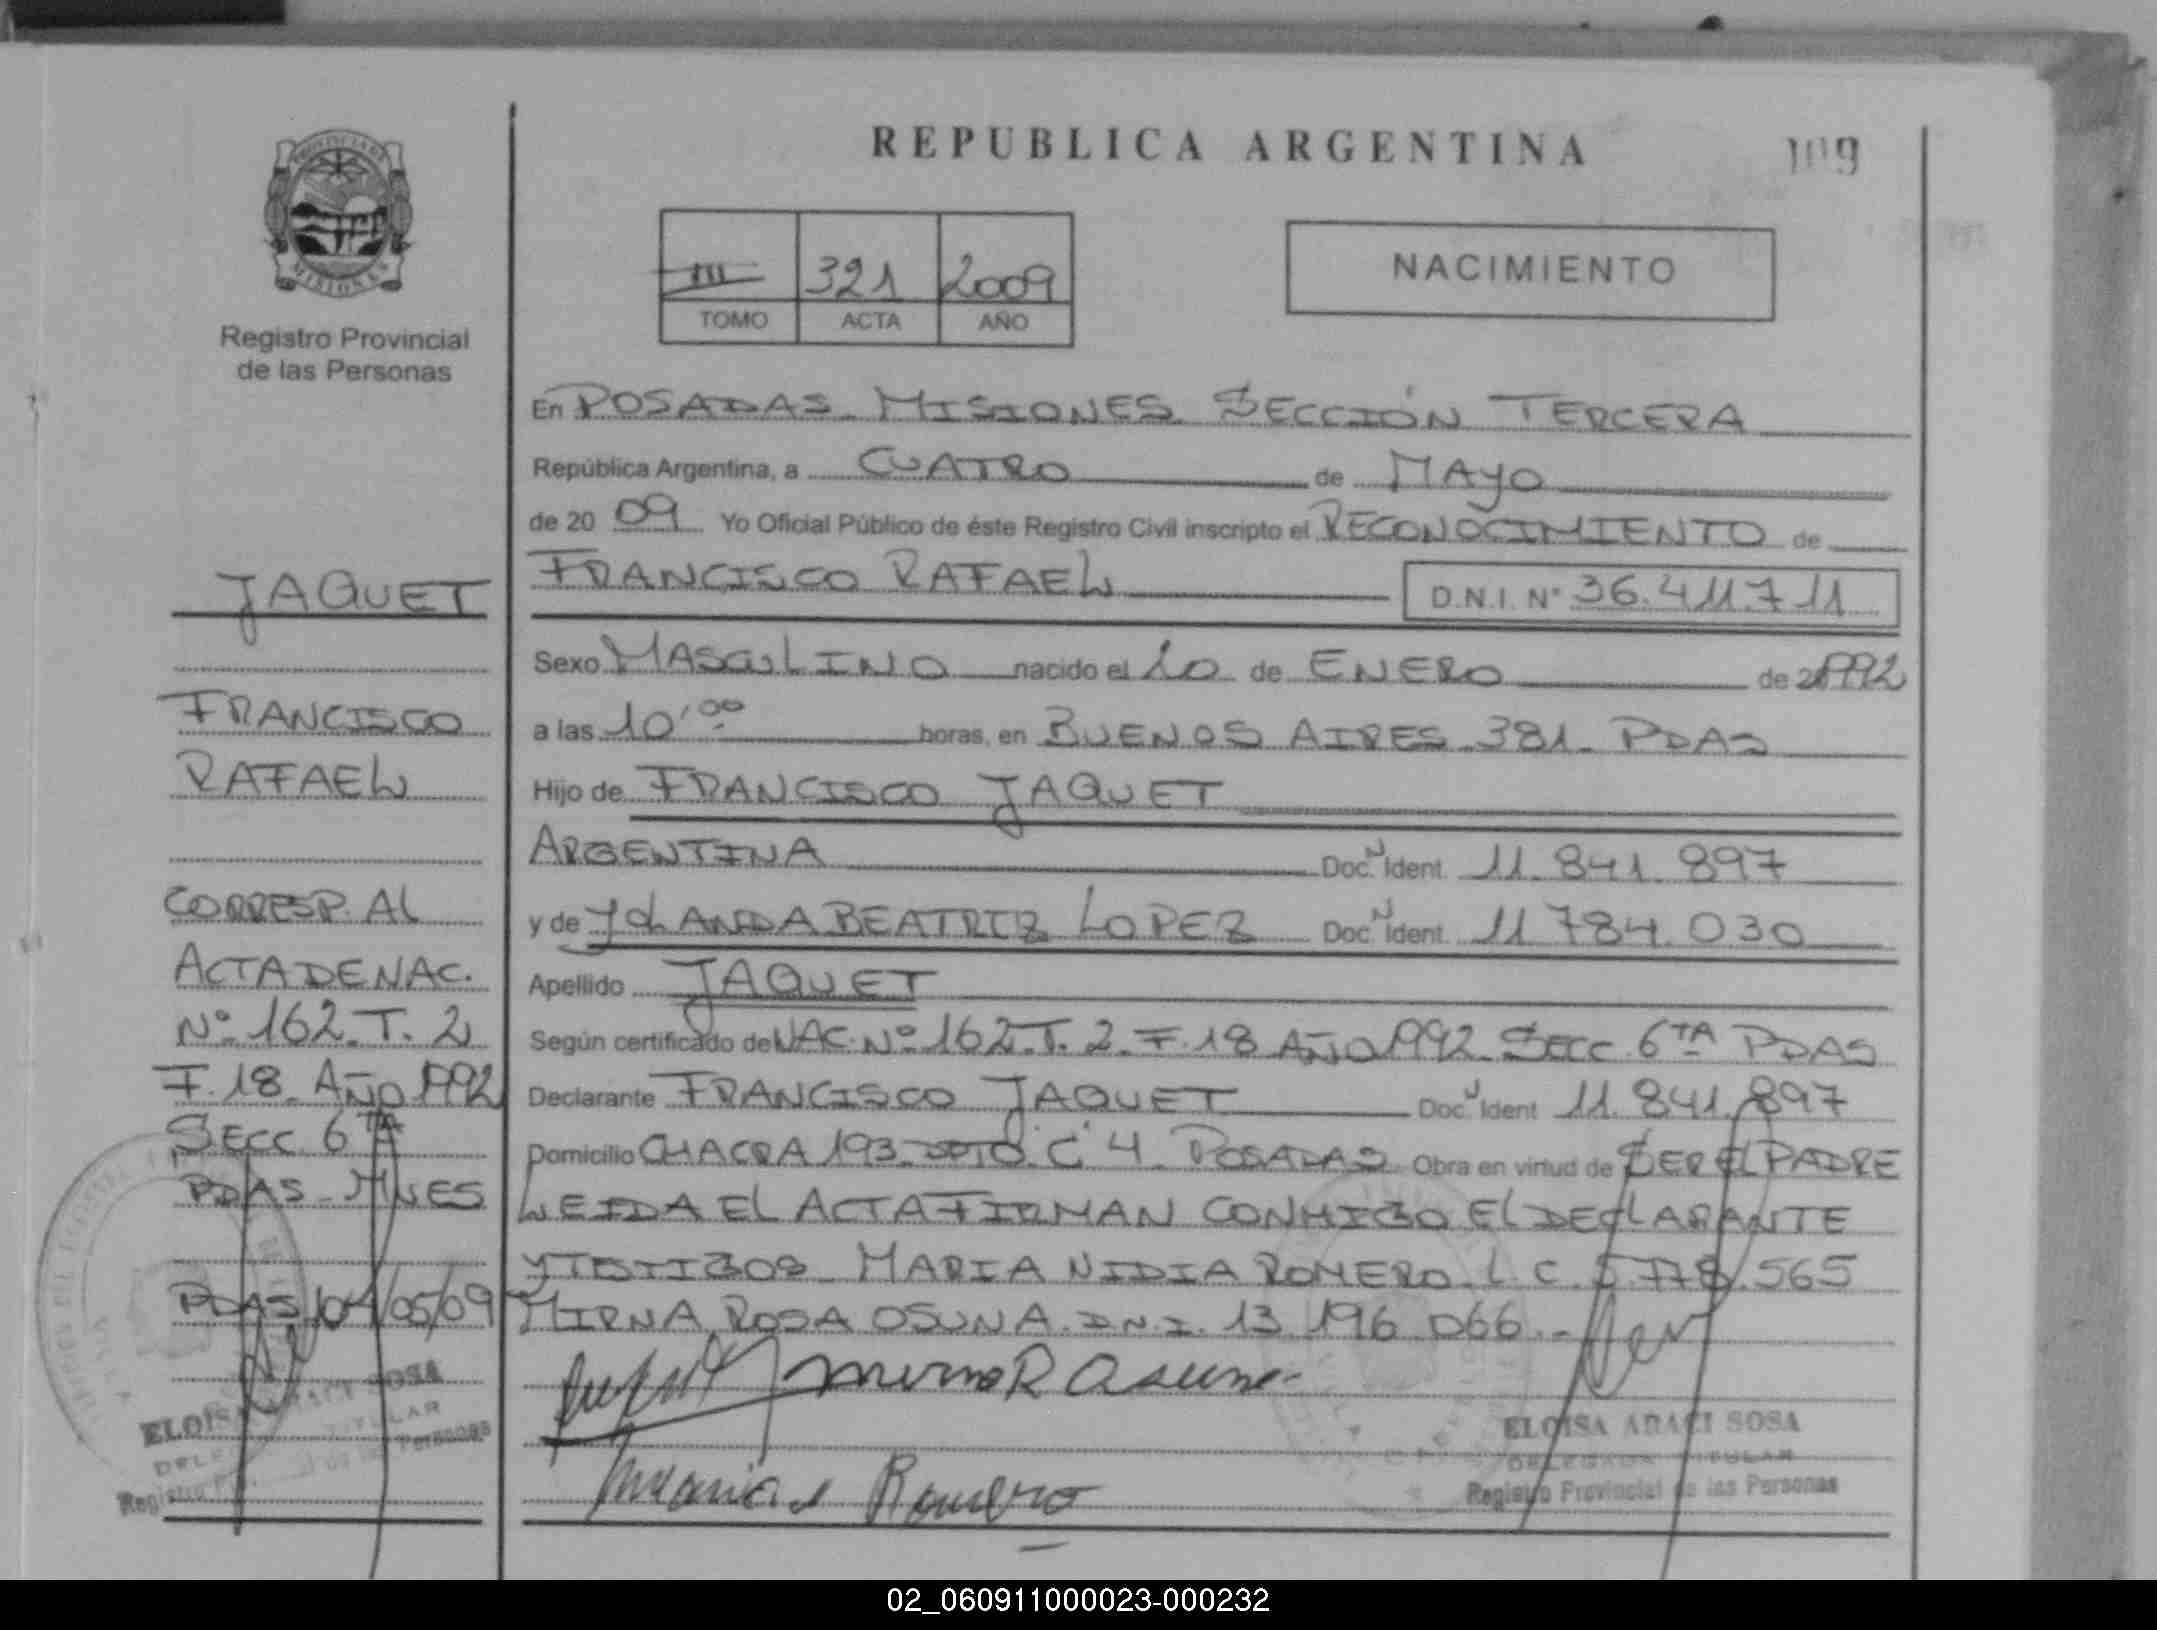 REPUBLICA ARGENTINA
109
PROVINCIA DE
MISIONES
Registro Provincial
de las Personas
III 321 2009
TOMO ACTA AÑO
NACIMIENTO
En POSADAS - MISIONES SECCIÓN TERCERA
República Argentina, a CUATRO de MAYO
de 20 09 Yo Oficial Público de éste Registro Civil inscripto el RECONOCIMIENTO de
FRANCISCO RAFAEL D.N.I. N° 36.411.711
Sexo MASCULINO nacido el 10 de ENERO de 1992
a las 10'00 horas, en BUENOS AIRES 381 - PDAS
Hijo de FRANCISCO JAQUET
ARGENTINA Doc. N Ident. 11.841.897
y de YOLANDA BEATRIZ LOPEZ Doc. N Ident. 11 784.030
Apellido JAQUET
Según certificado de NAC. Nº 162 - T. 2 - F. 18 AÑO 1992 - SECC. 6TA PDAS
Declarante FRANCISCO JAQUET Doc. N Ident 11.841.897
Domicilio CHACRA 193 - DPTO. "C" 4 - POSADAS Obra en virtud de SER EL PADRE
LEIDA EL ACTA FIRMAN CONMIGO EL DECLARANTE
Y TESTIGOS - MARIA NIDIA ROMERO - L C 5.778.565
MIRNA ROSA OSUNA - D.N.I. 13.196.066.-
Mirna R Osuna
Maria Romero
ELOISA ARACI SOSA
DELEGADA TITULAR
Registro Provincial de las Personas
JAQUET
FRANCISCO
RAFAEL
CORRESP. AL
ACTA DE NAC.
Nº 162 - T. 2
F. 18 - AÑO 1992
SECC. 6TA
PDAS - MNES
PDAS, 04/05/09
ELOISA ARACI SOSA
TITULAR
Personas
02_060911000023-000232